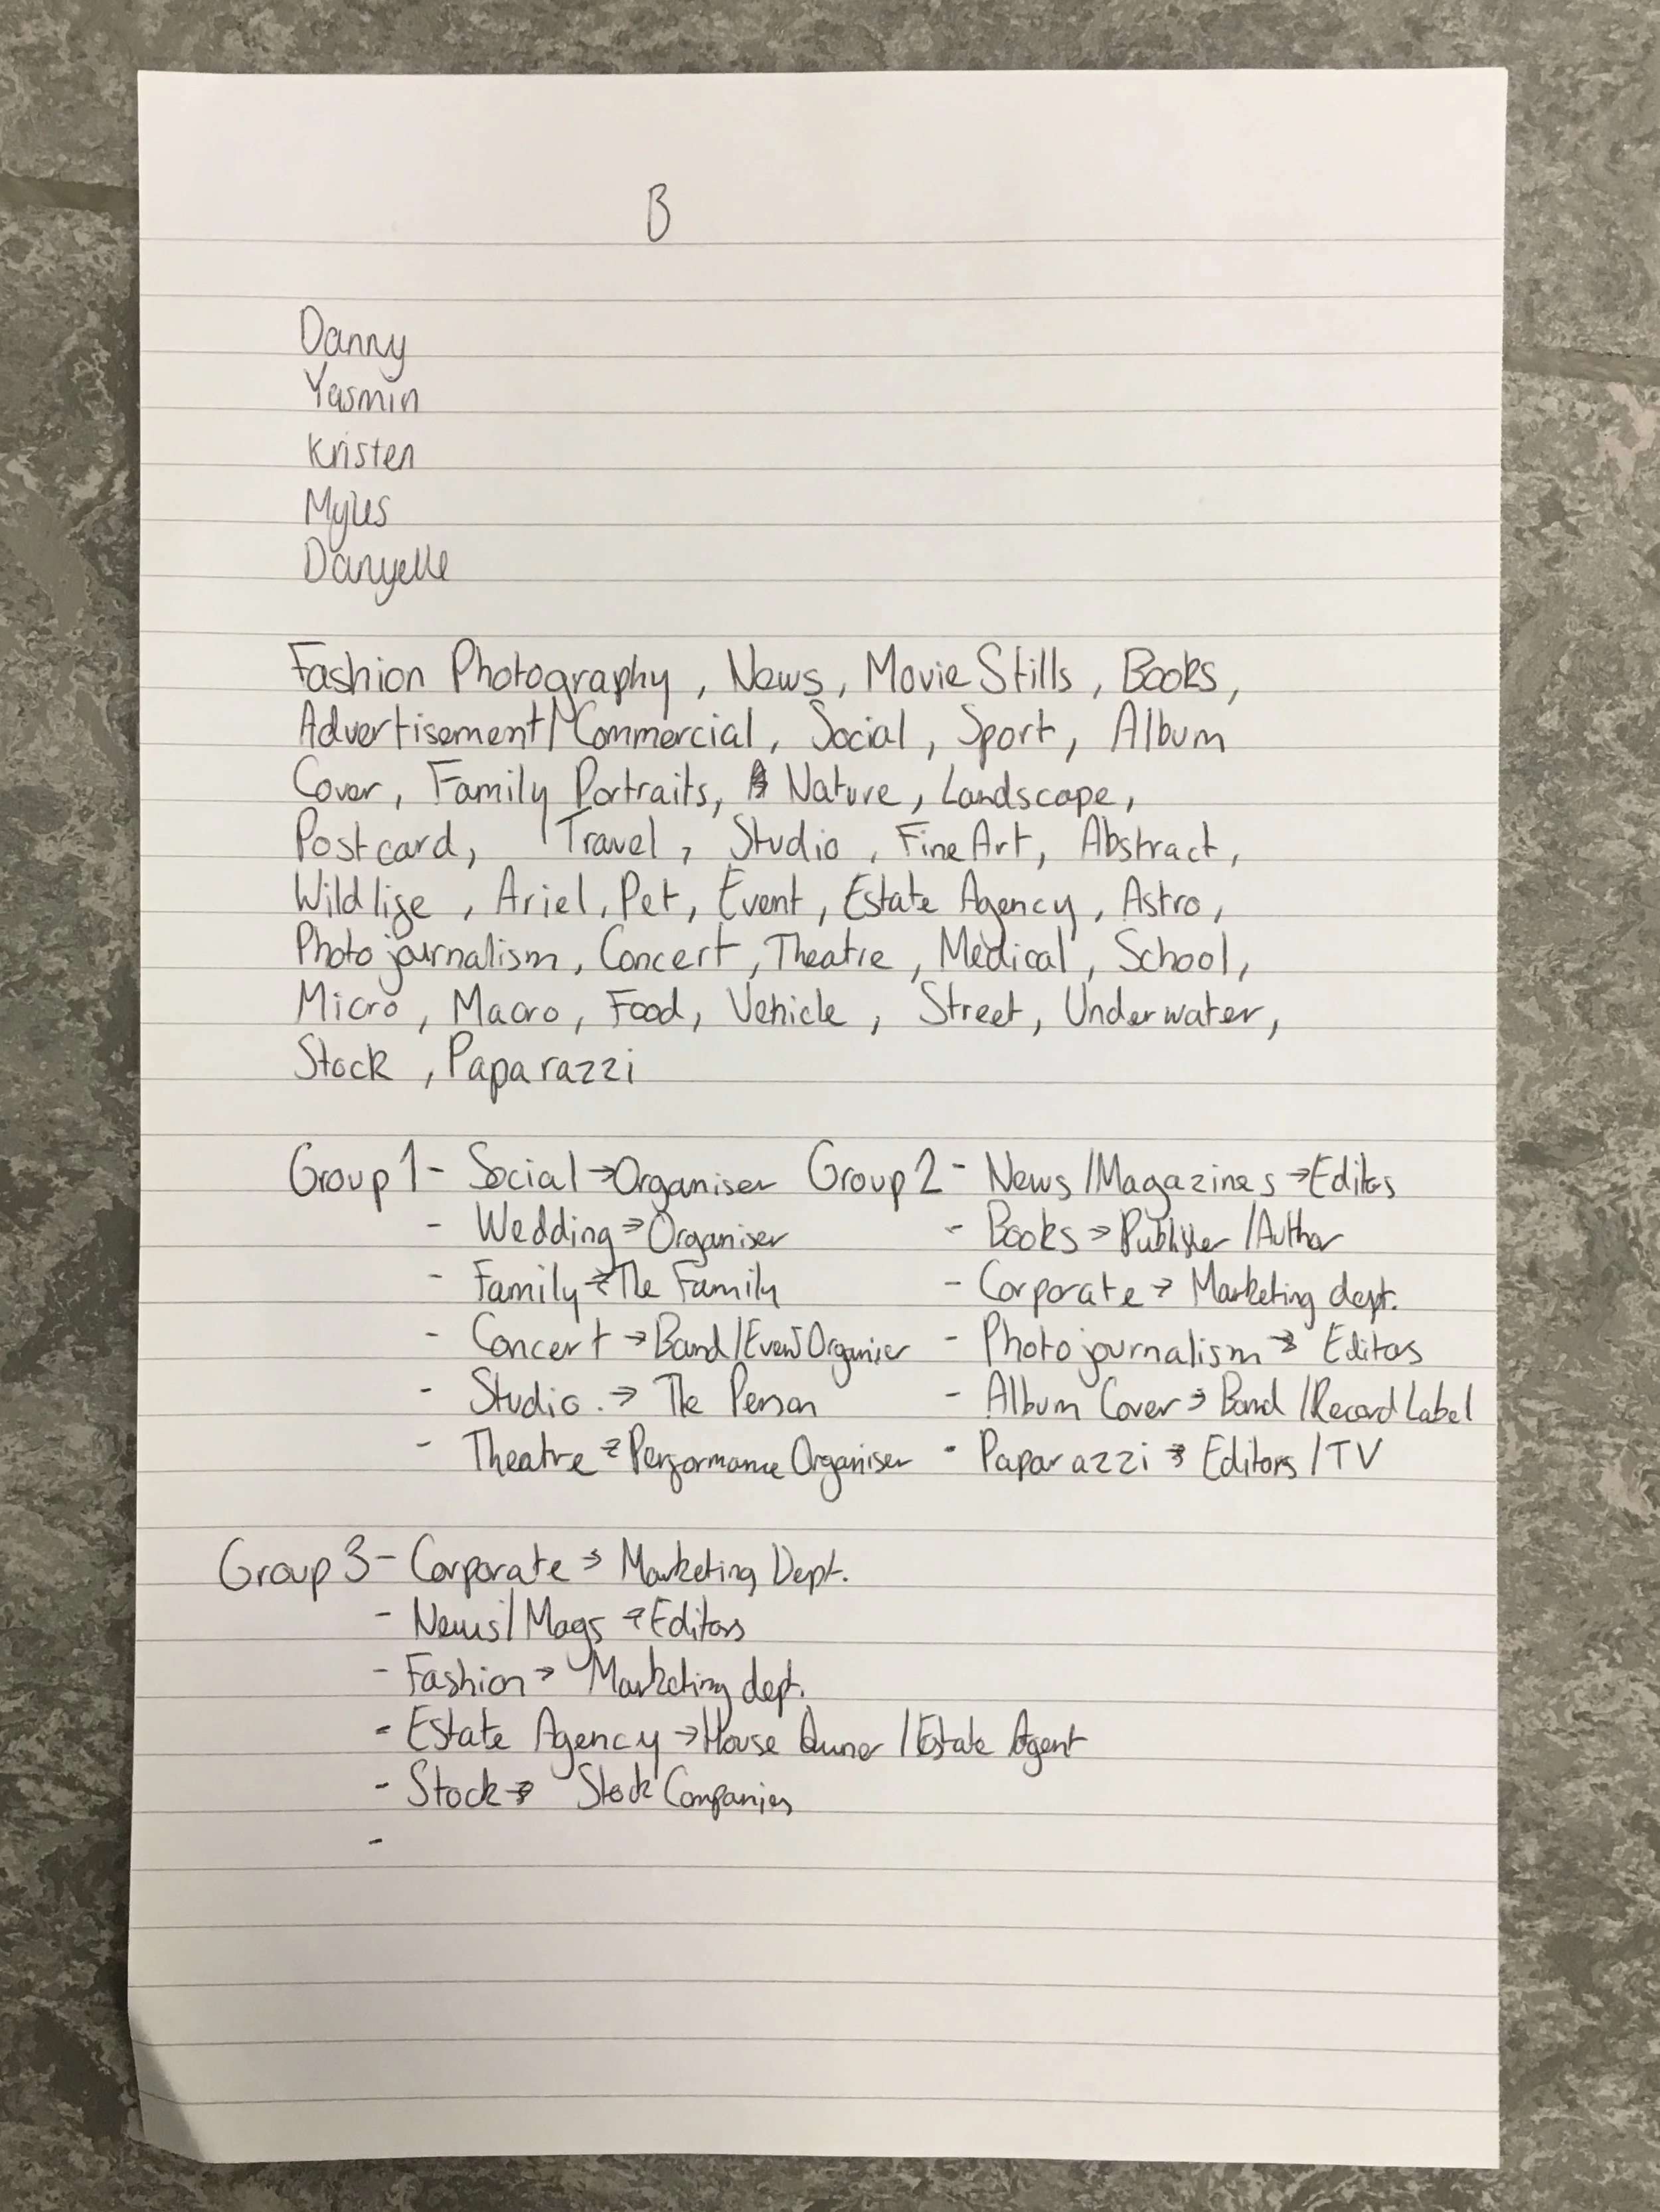 B
Danny
Yasmin
Kristen
Myles
Danyelle
Fashion Photography, News, Movie Stills, Books,
Advertisement/Commercial, Social, Sport, Album
Cover, Family Portraits, Nature, Landscape,
Postcard, Travel, Studio, Fine Art, Abstract,
Wildlife, Ariel, Pet, Event, Estate Agency, Astro,
Photojournalism, Concert, Theatre, Medical, School,
Micro, Macro, Food, Vehicle, Street, Underwater,
Stock, Paparazzi
Group 1 - Social → Organiser Group 2 - News/Magazines → Editors
- Wedding → Organiser - Books → Publisher/Author
- Family → The Family - Corporate → Marketing dept.
- Concert → Band/Event Organiser - Photojournalism → Editors
- Studio. → The Person - Album Cover → Band/Record Label
- Theatre → Performance Organiser - Paparazzi → Editors/TV
Group 3 - Corporate → Marketing Dept.
- News/Mags → Editors
- Fashion → Marketing dept.
- Estate Agency → House Owner/Estate Agent
- Stock → Stock Companies
-